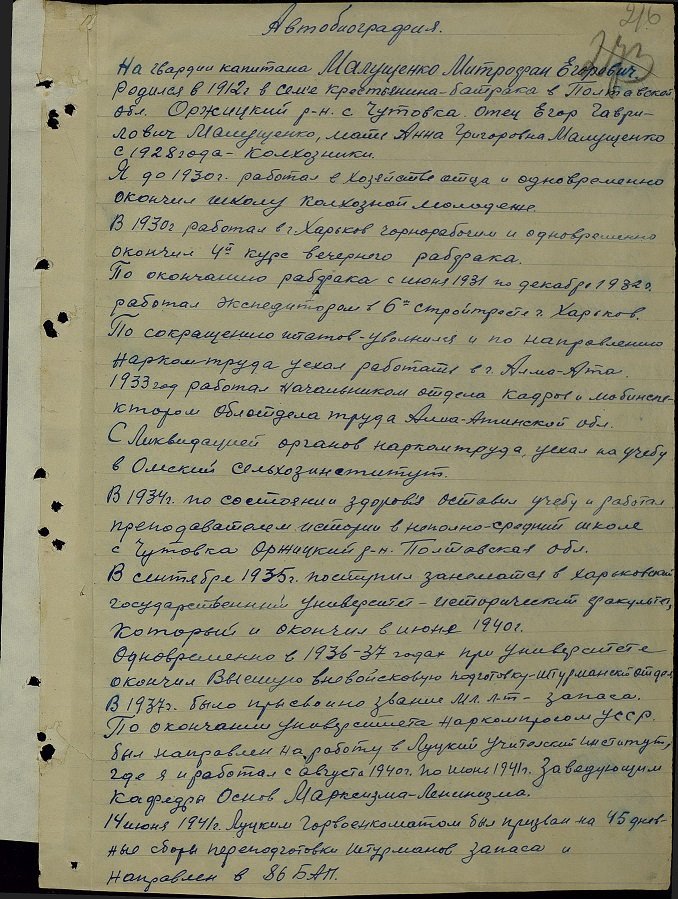 216
273
Автобиография.
На гвардии капитана Малущенко Митрофан Егорович
Родился в 1912г в семе крестьянина-батрака в Полтавской
обл. Оржицкий р-н. с Чутовка. Отец Егор Гаври-
лович Малущенко, мать Анна Григоровна Малущенко
с 1928 года - колхозники.
Я до 1930г. работал в хозяйстве отца и одновременно
окончил школу колхозной молодежи.
В 1930г работал в г. Харьков чорнорабочим и одновременно
окончил 4й курс вечернего рабфака.
По окончанию рабфака с июня 1931 по декабрь 1932г.
работал экспедитором в 6м стройтресте г. Харьков.
По сокращению штатов - уволился и по направлению
Наркомтруда уехал работать в г. Алма-Ата.
1933 год работал начальником отдела кадров и мобинспе-
ктором Облотдела труда Алма-Атинской обл.
С Ликвидацией органов наркомтруда, уехал на учебу
в Омский сельхозинститут.
В 1934г. по состоянии здоровя оставил учебу и работал
преподавателем истории в неполно-средний школе
с Чутовка Оржицкий р-н. Полтавская обл.
В сентябре 1935г. поступил заниматся в Харьковский
государственний университет - исторический факультет,
который и окончил в июне 1940г.
Одновременно в 1936-37 годах при университете
окончил Высшую вневойсковую подготовку - штурманский отдел
В 1937г. было присвоино звание мл. л-т - запаса.
По окончании университета наркомпросом УССР.
был направлен на работу в Луцкий Учителский институт,
где я и работал с августа 1940г. по июнь 1941г. Заведующим
кафедры Основ Марксизма-Ленинизма.
14 июня 1941г. Луцким Горвоенкоматом был призван на 45 днев-
ные сборы переподготовки штурманов запаса и
направлен в 86 БАП.